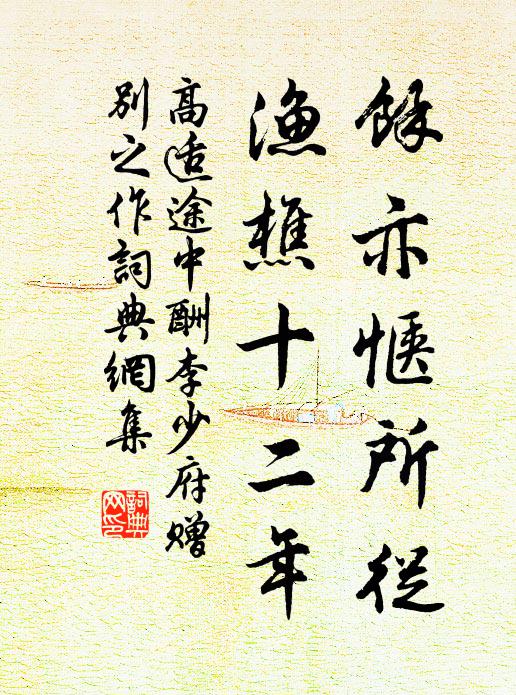 餘亦愜所從
漁樵十二年
高适途中酬李少府贈
別之作詞典網集
詞典
网印